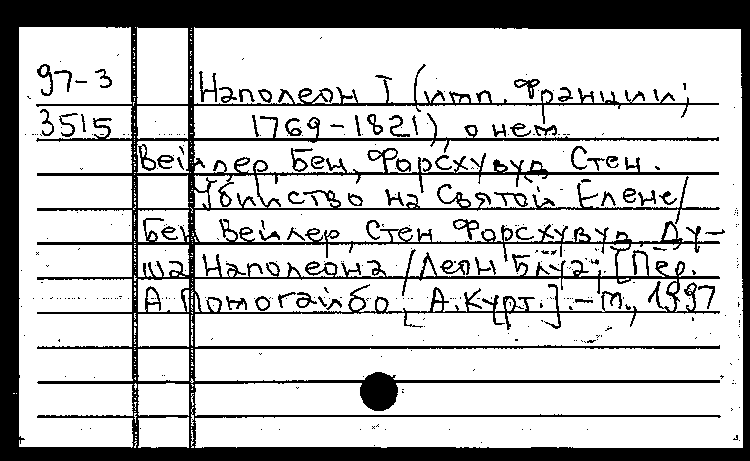 97-3 Наполеон I (имп. Франции;
3515 1769-1821), о нем
Вейдер, Бен, Форсхувуд, Стен.
Убийство на Святой Елене/
Бен Вейдер, Стен Форсхувуд. Ду-
ша Наполеона / Леон Блуа; [Пер.
А. Помогайбо, А. Курт.]. - М., 1997